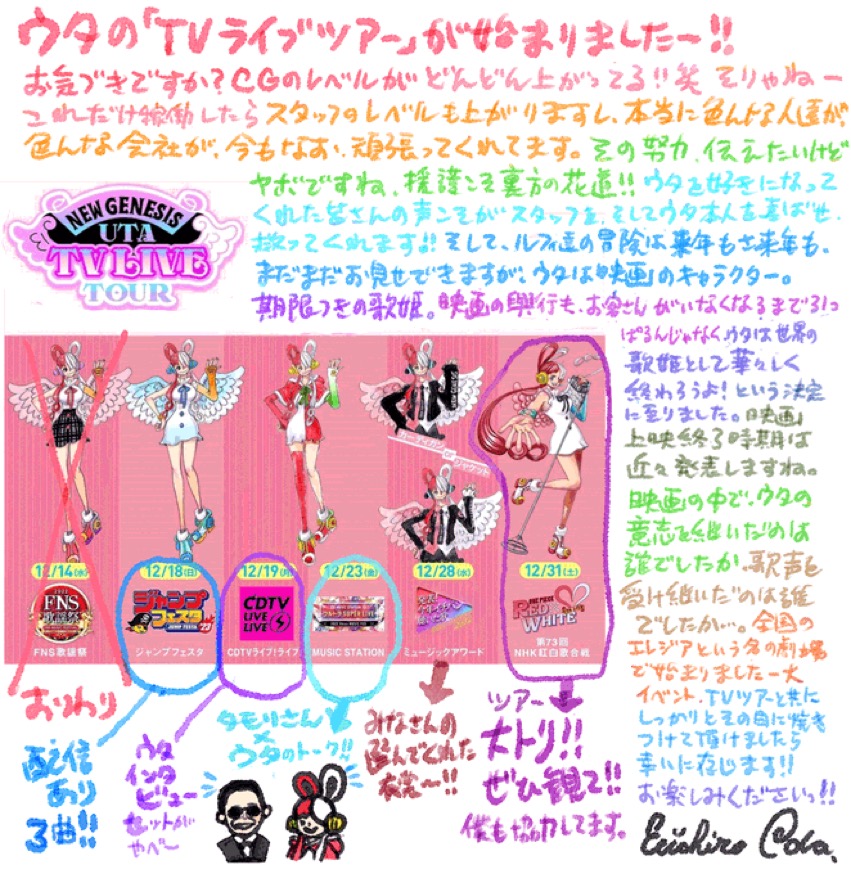 ウタの「TVライブツアー」が始まりましたー!!
お気づきですか?CGのレベルがどんどん上がってる!!笑 そりゃねー
これだけ稼働したらスタッフのレベルも上がりますし、本当に色んな人達が、
色んな会社が、今もなお、頑張ってくれてます。その努力、伝えたいけど
ヤボですね、援護こそ裏方の花道!!ウタを好きになって
くれた皆さんの声こそがスタッフを、そしてウタ本人を喜ばせ、
救ってくれます!!そして、ルフィ達の冒険は来年もさ来年も、
まだまだお見せできますが、ウタは映画のキャラクター。
期限つきの歌姫。映画の興行も、お客さんがいなくなるまでひっ
ぱるんじゃなく、ウタは世界の
歌姫として華々しく
終わろうよ!という決定
に至りました。映画
上映終了時期は
近々発表しますね。
映画の中で、ウタの
意志を継いだのは
誰でしたか、歌声を
受け継いだのは誰
でしたか…。全国の
エレジアという名の劇場
で始まりました一大
イベント、TVツアーと共に
しっかりとその目に焼き
つけて頂けましたら
幸いに存じます!!
お楽しみくださいっ!!
Eiichiro Oda.
NEW GENESIS
UTA
TV LIVE
TOUR
カーディガン
or
ジャケット
12/14(水)
12/18(日)
12/19(月)
12/23(金)
12/28(水)
12/31(土)
FNS
歌謡祭
ジャンプ
フェスタ
JUMP FESTA '23
CDTV
LIVE
LIVE
ウルトラSUPER LIVE
ONE PIECE
RED
WHITE
FNS歌謡祭
ジャンプフェスタ
CDTVライブ!ライブ!
MUSIC STATION
ミュージックアワード
第73回
NHK紅白歌合戦
おわり
配信
あり
3曲!!
ウタ
インタ
ビュー
セットが
やべ〜
タモリさん
×
ウタのトーク!!
みなさんの
選んでくれた
衣装〜!!
ツアー
大トリ!!
ぜひ観て!!
僕も協力してます。